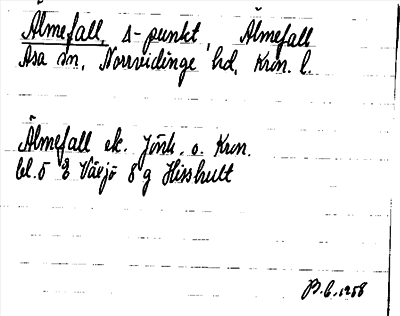 Älmefall, Δ-punkt, Älmefall
Asa sn, Norrvidinge hd, Kron. l.
Älmefall ek. Jönk. o. Kron.
bl. 5 Växjö 8 g Hisshult
1958